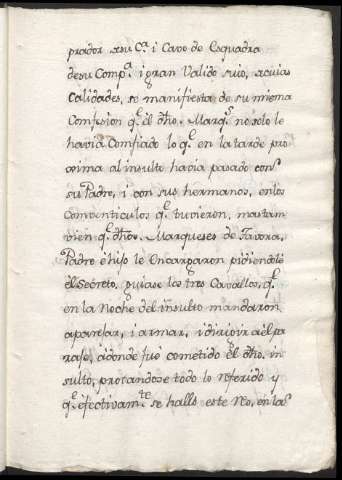 prador de su Cª. i Cavo de Esquadra
de su Compª. i gran Valido suio, de cuias
Calidades, se manifiesta de su misma
Comfesion qᵉ. el dho. Marqˢ. no solo le
havia Comfiado lo qᵉ. en la tarde pro
xima al insulto havia pasado con
su Padre, i con sus hermanos, en los
Combenticulos qᵉ. tuvieron, mas tam
vien qᵉ. dhos. Marqueses de Tavora,
Padre e hijo le Encargaron pidiendole
el Secreto, guiase los tres Cavallos, qᵉ.
en la Noche del insulto mandaron
aparejar, i armar, i dirigir a el pa
raje, a donde fue cometido el dho. in
sulto, protandose todo lo referido y
qᵉ. efectivamᵗᵉ. se hallo este Reo, en las